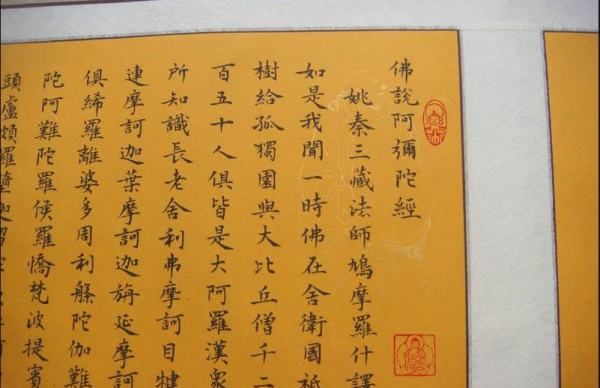 佛說阿彌陀經
姚秦三藏法師鳩摩羅什譯
如是我聞一時佛在舍衛國祇
樹給孤獨園與大比丘僧千二
百五十人俱皆是大阿羅漢眾
所知識長老舍利弗摩訶目犍
連摩訶迦葉摩訶迦旃延摩訶
俱絺羅離婆多周利槃陀伽難
陀阿難陀羅侯羅憍梵波提賓
頭盧頗羅墮